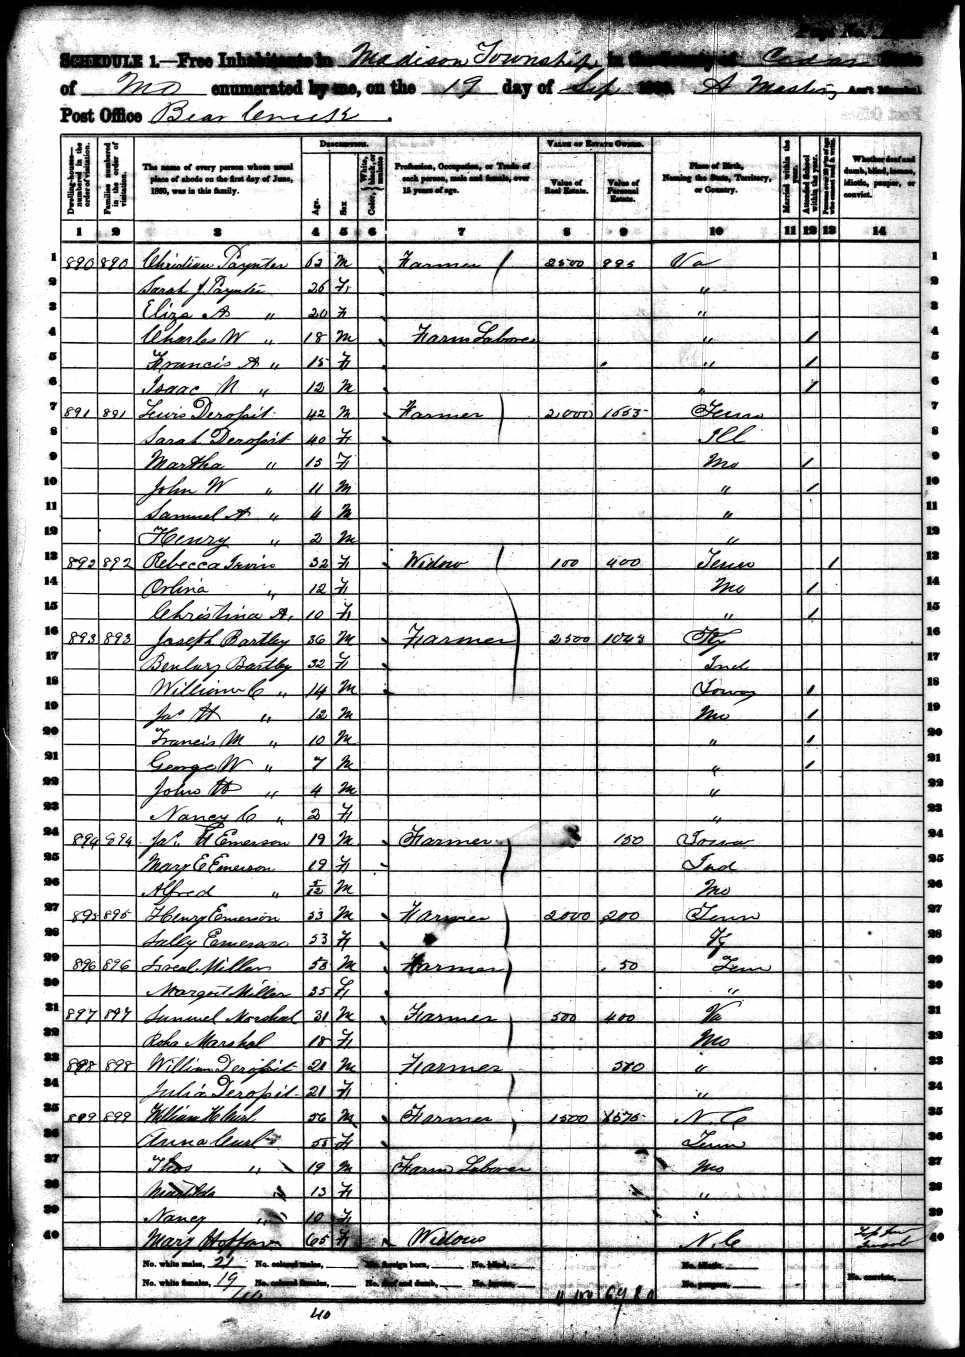 Page No.
SCHEDULE 1.—Free Inhabitants in Madison Township in the County of Cedar State
of Mo enumerated by me, on the 19 day of Sep 1860. A Mastin, Ass't Marshal.
Post Office Bear Creek.
Dwelling-houses—numbered in the order of visitation. Families numbered in the order of visitation. The name of every person whose usual place of abode on the first day of June, 1860, was in this family. DESCRIPTION. Age. Sex. Color, White, black, or mulatto. Profession, Occupation, or Trade of each person, male and female, over 15 years of age. VALUE OF ESTATE OWNED. Value of Real Estate. Value of Personal Estate. Place of Birth, Naming the State, Territory, or Country. Married within the year. Attended School within the year. Persons over 20 y'rs of age who cannot read & write. Whether deaf and dumb, blind, insane, idiotic, pauper, or convict.
1 2 3 4 5 6 7 8 9 10 11 12 13 14
1 890 890 Christian Paynter 62 M Farmer 2500 995 Va 1
2 Sarah J Paynter 26 F " 2
3 Eliza A " 20 F " 3
4 Charles W " 18 M Farm Laborer " 1 4
5 Francis A " 15 F " 1 5
6 Isaac N " 12 M " 1 6
7 891 891 Lewis Derossit 42 M Farmer 2000 1655 Tenn 7
8 Sarah Derossit 40 F Ill 8
9 Martha " 15 F Mo 1 9
10 John W " 11 M " 1 10
11 Samuel A " 4 M " 11
12 Henry " 2 M " 12
13 892 892 Rebecca Irvin 32 F Widow 100 400 Tenn 1 13
14 Orlina " 12 F Mo 1 14
15 Christina A, 10 F " 1 15
16 893 893 Joseph Bartley 36 M Farmer 2500 1043 Ky 16
17 Bartley 32 F Ind 17
18 William C " 14 M Iowa 1 18
19 Jas H " 12 M Mo 1 19
20 Francis M " 10 M " 1 20
21 George W " 7 M " 1 21
22 John H " 4 M " 22
23 Nancy C " 2 F " 23
24 894 894 Jas. H Emerson 19 M Farmer 150 Iowa 24
25 Mary E Emerson 19 F Ind 25
26 Alfred " /12 M Mo 26
27 895 895 Henry Emerson 53 M Farmer 2000 200 Tenn 27
28 Sally Emerson 53 F Ky 28
29 896 896 Miller 53 M Farmer 50 Tenn 29
30 Margret Miller 35 F " 30
31 897 897 Samuel Morshal 31 M Farmer 500 400 Va 31
32 Marshal 18 F Mo 32
33 898 898 William Derossit 21 M Farmer 510 " 33
34 Julia Derossit 21 F " 34
35 899 899 William H Curl 56 M Farmer 1500 1575 N.C 35
36 Anna Curl 55 F Tenn 36
37 Thos " 19 M Farm Laborer Mo 37
38 Matilda " 13 F " 38
39 Nancy " 10 F " 39
40 Mary 65 F Widow N.C 40
No. white males, 21 No. colored males, No. foreign born, No. blind, No. idiotic,
No. white females, 19 No. colored females, No. deaf and dumb, No. insane, No. paupers, No. convicts,
40